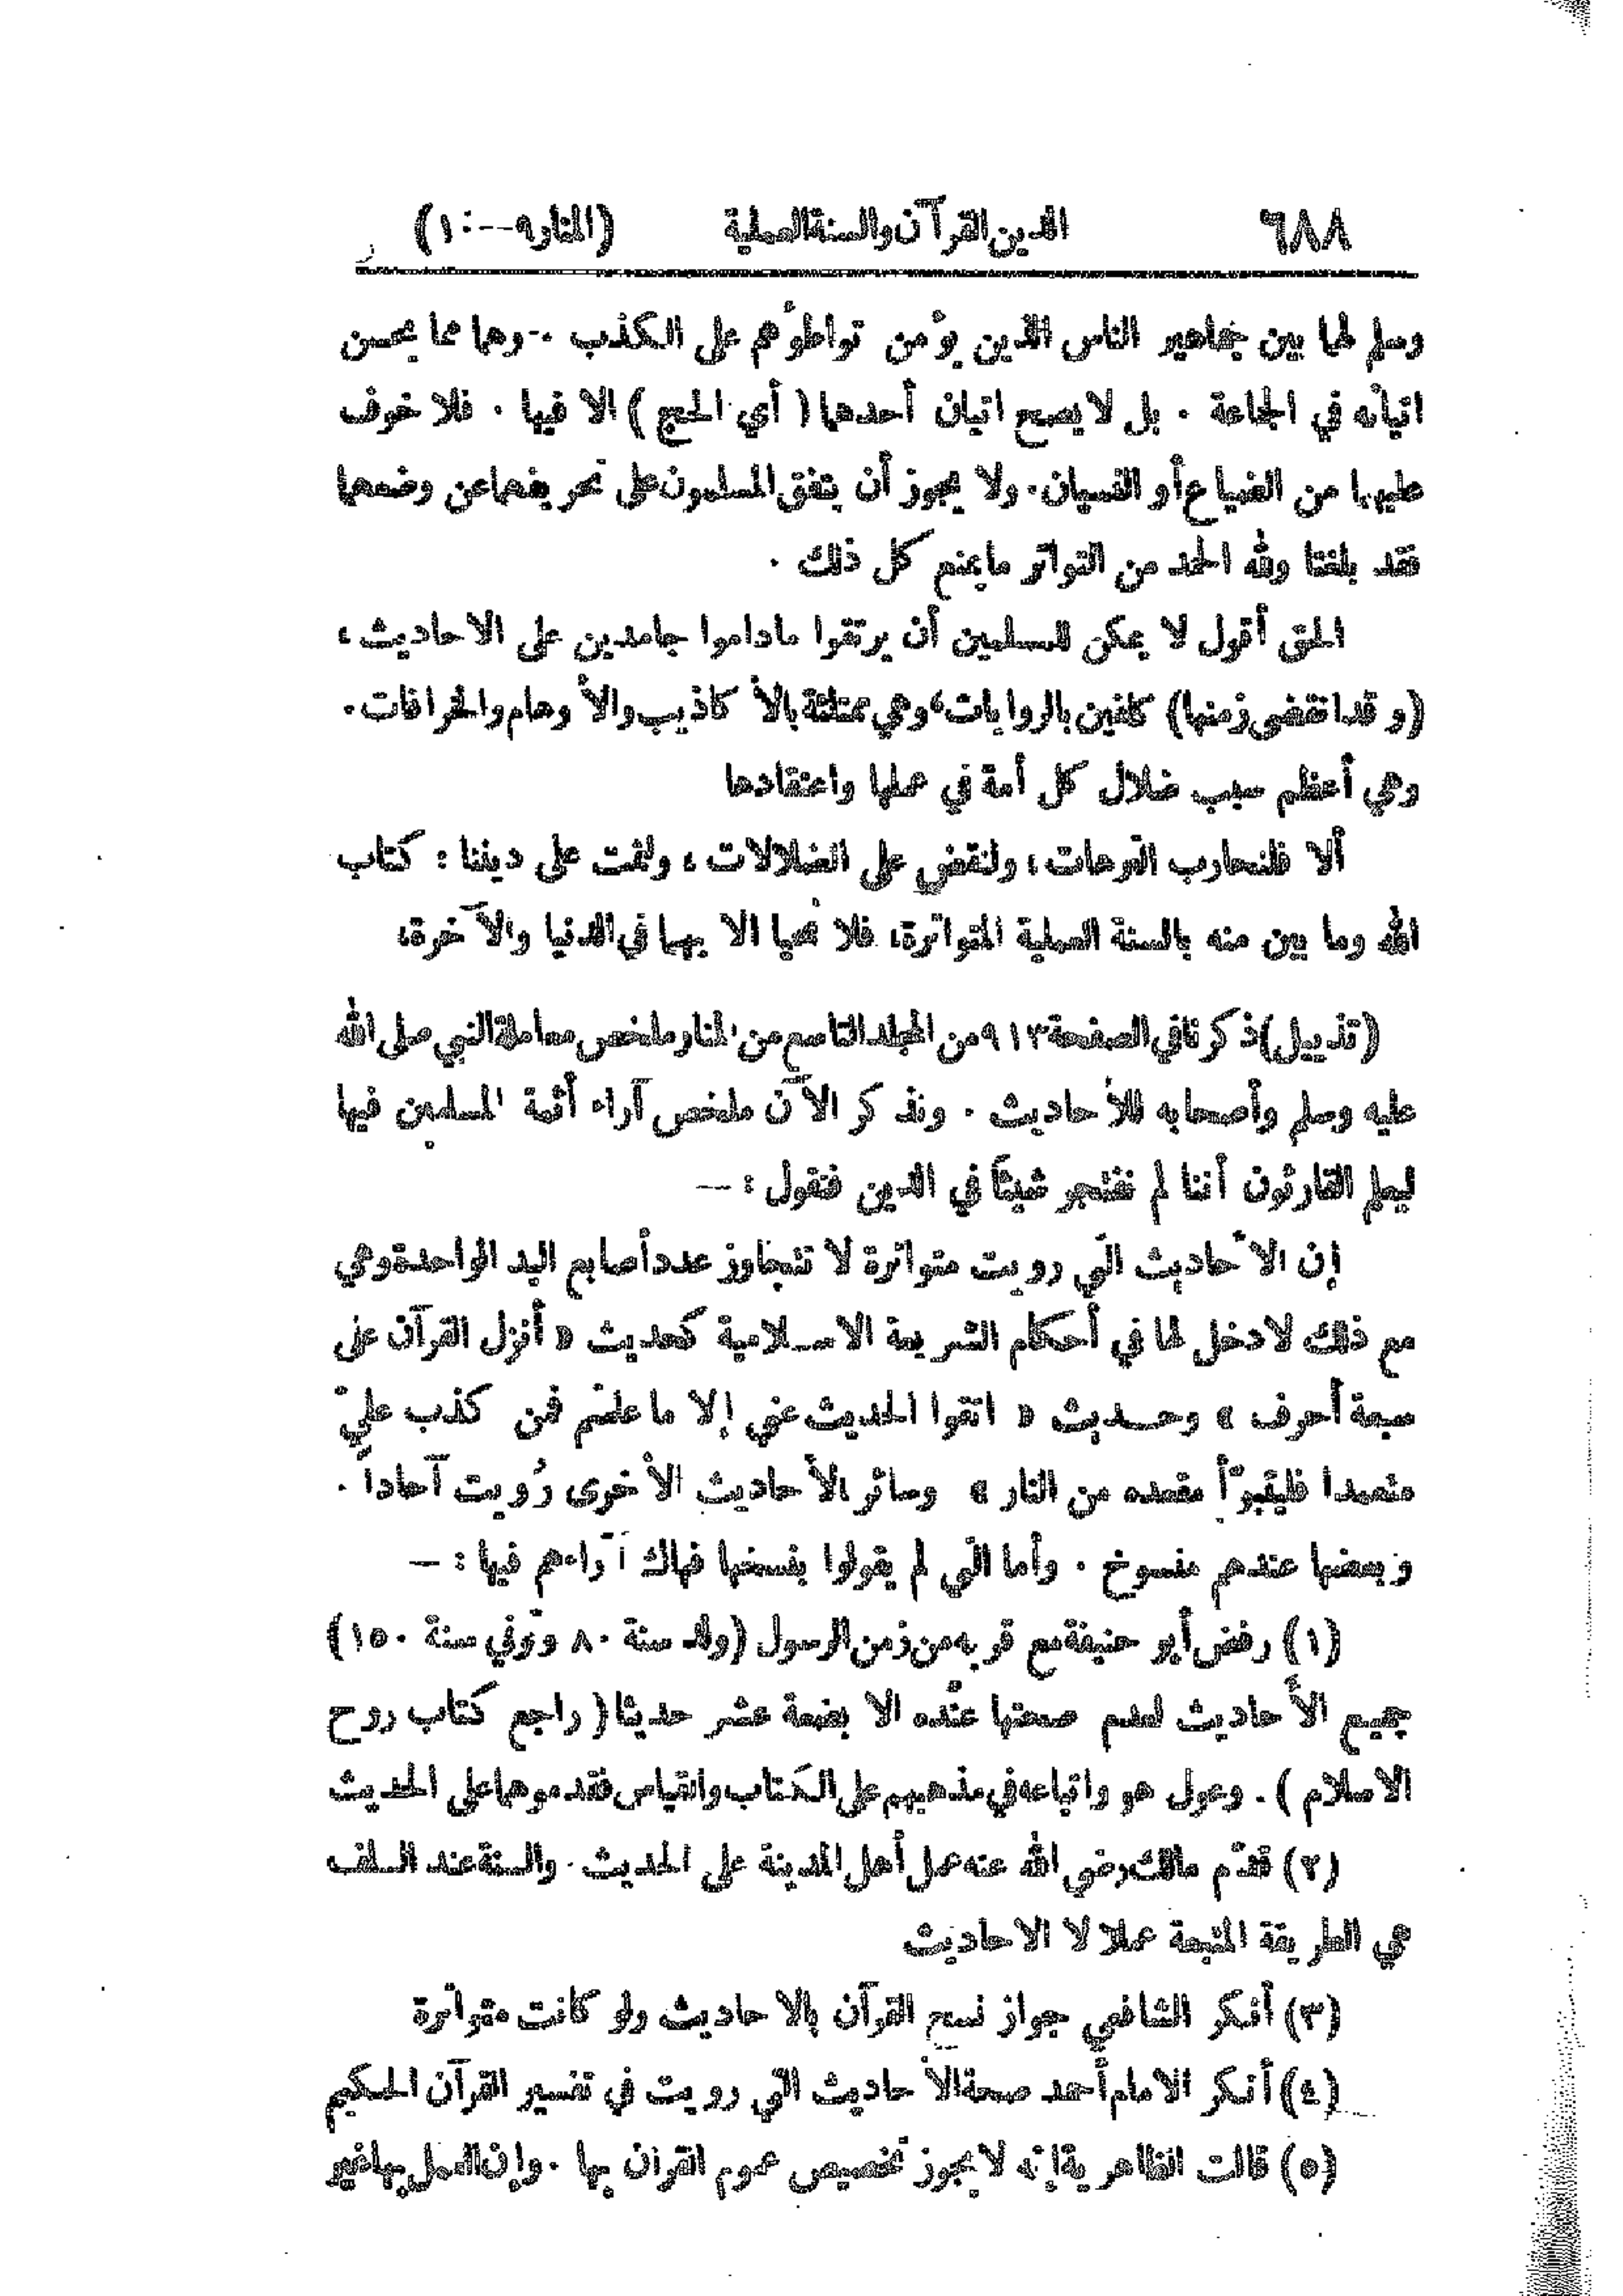 ٦٨٨ الدين القرآن والسنة العملية (المنار ٩ -- ١٠)
وسلم لها بين جماهير الناس الذين يؤمن تواطؤهم على الكذب .- وهما مما يحسن
اتيانه في الجماعة . بل لا يصح اتيان أحدهما ( أي الحج ) الا فيها . فلا خوف
عليهما من الضياع أو النسيان. ولا يجوز أن يتفق المسلمون على تحريفهما عن وضعهما
فقد بلغتا ولله الحمد من التواتر ما يمنع كل ذلك .
الحق أقول لا يمكن للمسلمين أن يرتقوا ماداموا جامدين على الاحاديث ،
(وقد انقضى زمنها) كلفين بالروايات، وهي ممتلئة بالأكاذيب والأوهام والخرافات.
وهي أعظم سبب ضلال كل أمة في عملها واعتقادها
ألا فلنحارب الترهات ، ولنقض على الضلالات ، ولنمت على ديننا : كتاب
الله وما بين منه بالسنة العملية المتواترة، فلا نحيا الا بهما في الدنيا والآخرة،
(تذييل) ذكرنا في الصفحة ٩١٣ من المجلد التاسع من المنار ملخص معاملة النبي صلى الله
عليه وسلم وأصحابه للأحاديث . ونذكر الآن ملخص آراء أئمة المسلمين فيها
ليعلم القارئون أننا لم نفتجر شيئاً في الدين فنقول : --
إن الأحاديث التي رويت متواترة لا تتجاوز عدد أصابع اليد الواحدة وهي
مع ذلك لا دخل لها في أحكام الشريعة الاسلامية كحديث « أنزل القرآن على
سبعة أحرف » وحديث « اتقوا الحديث عني إلا ما علمتم فمن كذب عليّ
متعمدا فليتبوّأ مقعده من النار » وسائر الأحاديث الأخرى رُويت آحاداً .
وبعضها عندهم منسوخ . وأما التي لم يقولوا بنسخها فهاك آراءهم فيها : —
(١) رفض أبو حنيفة مع قربه من زمن الرسول (ولد سنة ٨٠ وتوفي سنة ١٥٠)
جميع الأحاديث لعدم صحتها عنده الا بضعة عشر حديثا ( راجع كتاب روح
الاسلام ) . وعول هو واتباعه في مذهبهم على الكتاب والقياس فقدموهما على الحديث
(٢) قدّم مالك رضي الله عنه عمل أهل المدينة على الحديث . والسنة عند السلف
هي الطريقة المتبعة عملا لا الاحاديث
(٣) أنكر الشافعي جواز نسخ القرآن بالاحاديث ولو كانت متواترة
(٤) أنكر الامام أحمد صحة الأحاديث التي رويت في تفسير القرآن الحكيم
(٥) قالت الظاهرية إنه لا يجوز تخصيص عموم القرآن بها . وإن العمل بها غير